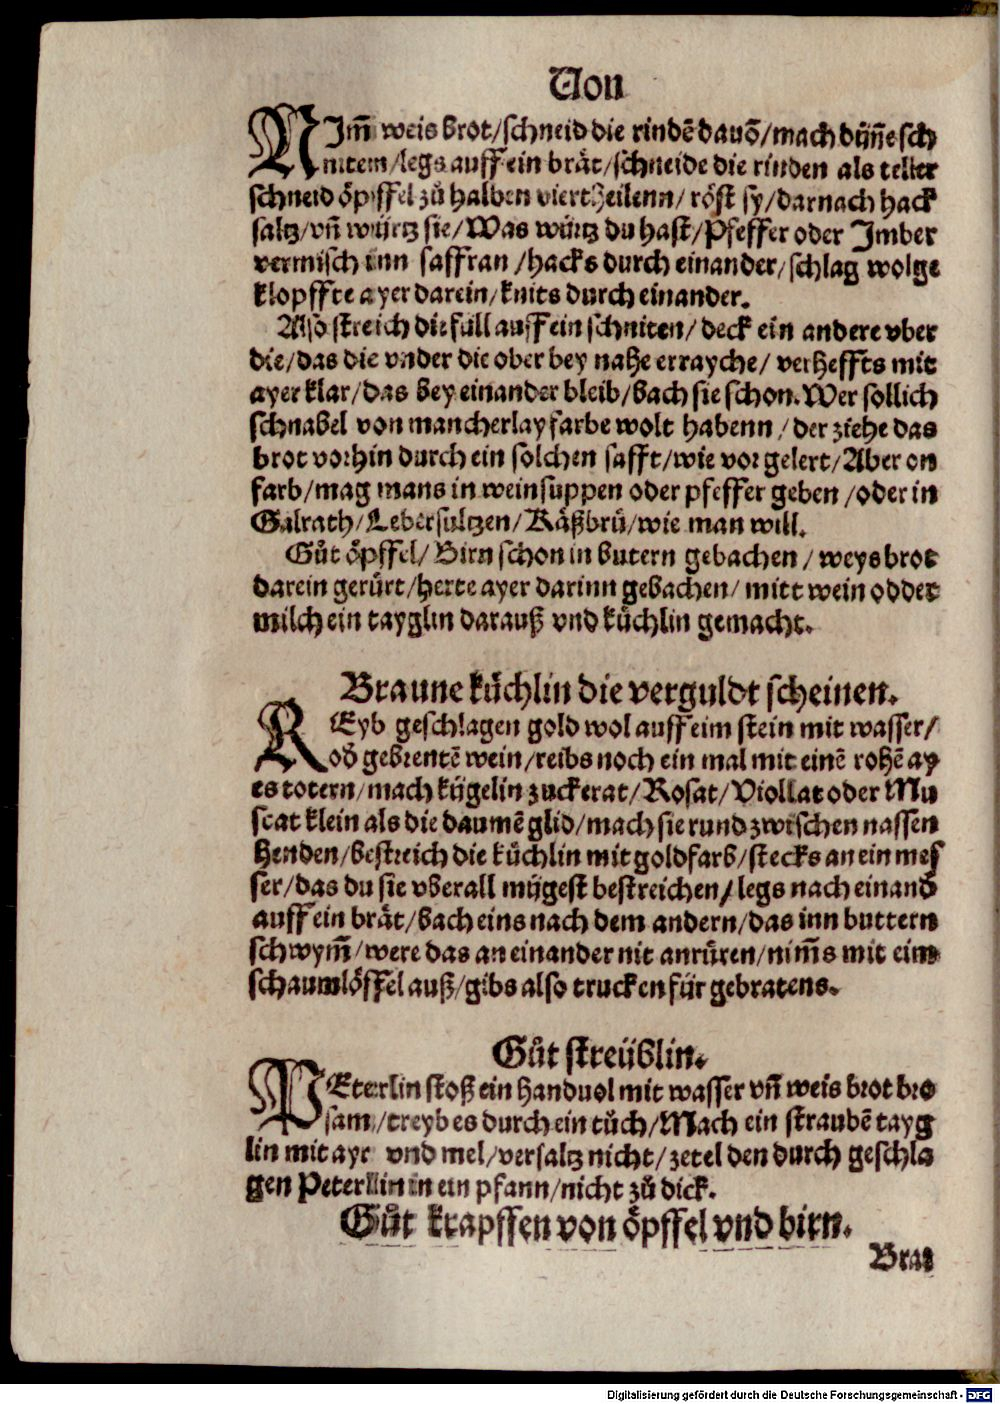 Von
NImm̄ weis brot/schneid die rindē dauō/mach dyn̄e sch
nitem/legs auff ein brät/schneide die rinden als teller
schneid öpffel zů halben viertheilenn/ röst sy/darnach hack
saltz/vn̄ würtz sie/Was würtz du hast/Pfeffer oder Jmber
vermisch inn saffran /hacks durch einander/schlag wolge
klopffte ayer darein/knits durch einander.
Also streich die füll auff ein schniten/ deck ein andere vber
die/das die vnder die ober bey nahe errayche/ verheffts mit
ayer klar/das bey einander bleib/bach sie schon.Wer sollich
schnabel von mancherlay farbe wolt habenn/der ziehe das
brot vorhin durch ein solchen safft/wie vor gelert/Aber on
farb/mag mans in weinsuppen oder pfeffer geben /oder in
Galrath/Lebersultzen/Käßbrů/wie man will.
Gůt öpffel/ Birn schon in butern gebachen/ weys brot
darein gerürt/herte ayer darinn gebachen/ mitt wein odder
milch ein tayglin darauß vnd küchlin gemacht.
Braune küchlin die verguldt scheinen.
REyb geschlagen gold wol auff eim stein mit wasser/
od̄ gebrentē wein/reibs noch ein mal mit einē rohē ay
es totern/mach kügelin zuckerat/Rosat/Viollat oder Mu
scat klein als die daumē glid/mach sie rund zwischen nassen
henden/bestreich die küchlin mit goldfarb/stecks an ein mes
ser/das du sie vberall mügest bestreichen/legs nach einand̄
auff ein brät/bach eins nach dem andern/das inn buttern
schwym̄/were das an einander nit anrüren/nim̄s mit eim
schaumlöffel auß/gibs also trucken für gebratens.
Gůt streüblin.
PEterlin stoß ein handuol mit wasser vn̄ weis brot bro
sam/treyb es durch ein tůch/Mach ein straubē tayg
lin mit aye vnd mel/versaltz nicht/zetel den durch geschla
gen Peterllin in ein pfann/nicht zů dick.
Gůt krapffen von öpffel vnd birn.
Brat
Digitalisierung gefördert durch die Deutsche Forschungsgemeinschaft - DFG